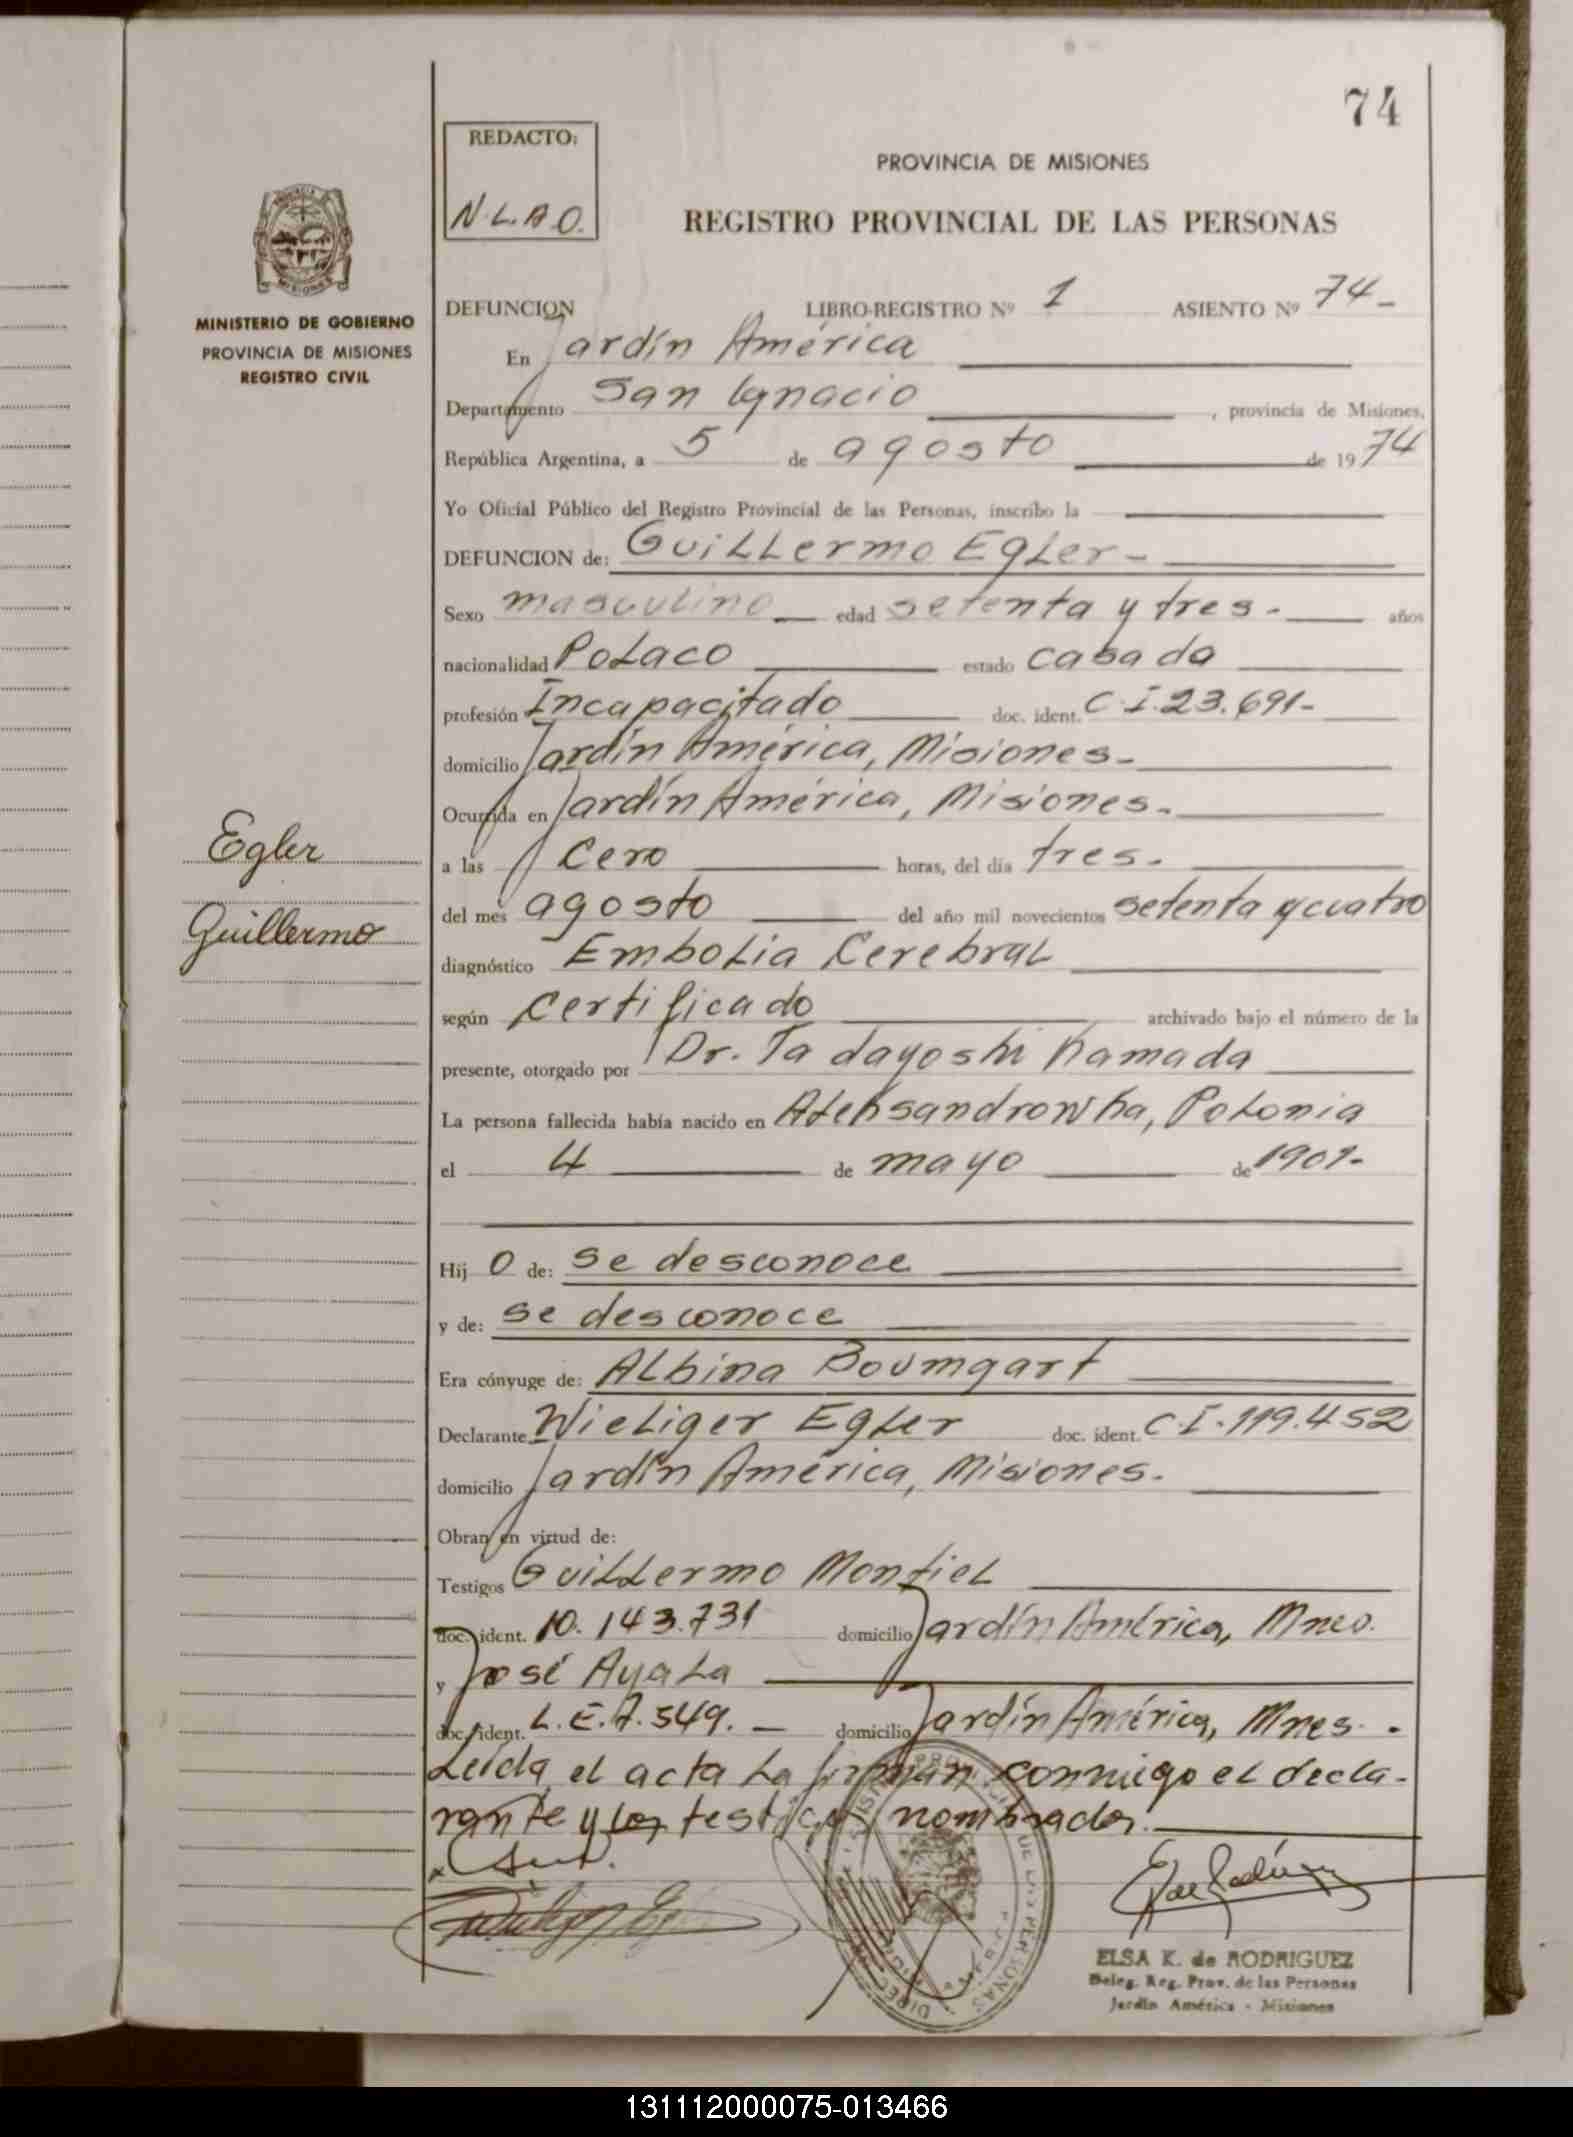 74
REDACTO:
N.L.A.O.
PROVINCIA DE MISIONES
REGISTRO PROVINCIAL DE LAS PERSONAS
MINISTERIO DE GOBIERNO
PROVINCIA DE MISIONES
REGISTRO CIVIL
DEFUNCION LIBRO-REGISTRO Nº 1 ASIENTO Nº 74-
En Jardín América
Departamento San Ignacio , provincia de Misiones,
República Argentina, a 5 de agosto de 1974
Yo Oficial Público del Registro Provincial de las Personas, inscribo la
DEFUNCION de: Guillermo Egler-
Sexo masculino edad setenta y tres- años
nacionalidad Polaco estado casado
profesión Incapacitado doc. ident. C.I.23.691-
domicilio Jardín América, Misiones-
Ocurrida en Jardín América, Misiones-
a las Cero horas, del día tres-
del mes agosto del año mil novecientos setenta y cuatro
diagnóstico Embolia Cerebral
según certificado archivado bajo el número de la
presente, otorgado por Dr. Tadayoshi Kamada
La persona fallecida había nacido en Aleksandrowka, Polonia
el 4 de mayo de 1901-
Hij o de: se desconoce
y de: se desconoce
Era cónyuge de: Albina Boumgart
Declarante Wieliger Egler doc. ident. C.I.119.452
domicilio Jardín América, Misiones.
Obran en virtud de:
Testigos Guillermo Montiel
doc. ident. 10.143.731 domicilio Jardín América, Mnes.
y José Ayala
doc. ident. L.E.7.549.- domicilio Jardín América, Mnes.
Leída el acta la firman conmigo el decla-
rante y los testigos nombrados.
Egler
Guillermo
ELSA K. de RODRIGUEZ
Deleg. Reg. Prov. de las Personas
Jardín América - Misiones
131112000075-013466